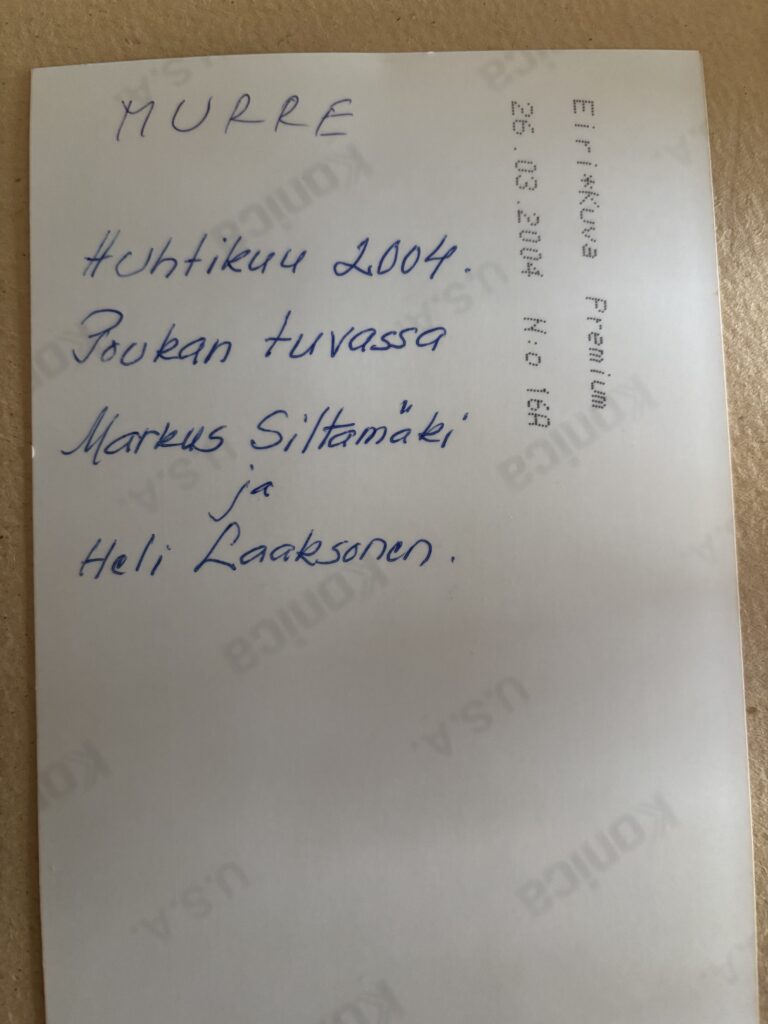 MURRE
Huhtikuu 2004.
Poukan tuvassa
Markus Siltamäki
ja
Heli Laaksonen.
Eiri*Kuva Premium
26.03.2004 N:o 16A
Konica
U.S.A.
Konica
U.S.A.
Konica
U.S.A.
Konica
U.S.A.
Konica
U.S.A.
Konica
U.S.A.
Konica